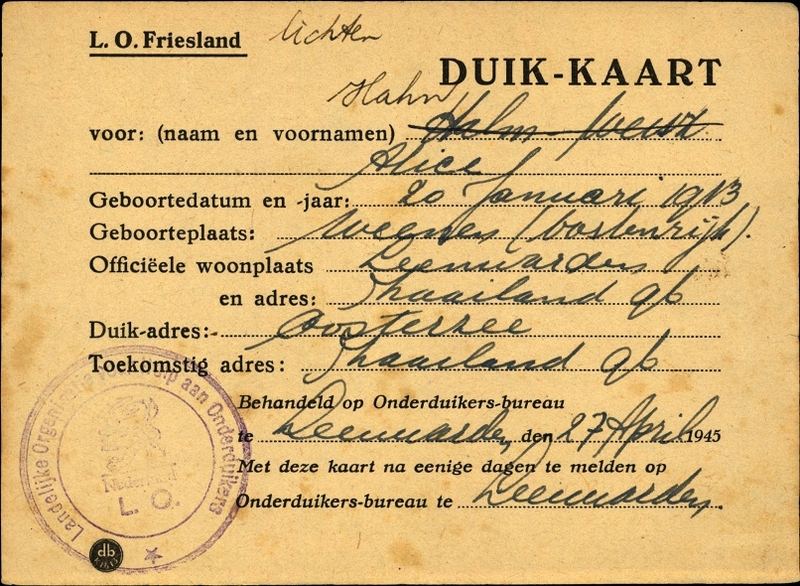 L. O. Friesland lichten
DUIK-KAART
Hahn
voor: (naam en voornamen) Halm - Weisz
Alice
Geboortedatum en -jaar: 20 Januari 1913
Geboorteplaats: Weenen (Oostenrijk).
Officiëele woonplaats Leeuwarden
en adres: Shaailand 96
Duik-adres:- Oosterzee
Toekomstig adres: Shaailand 96
Behandeld op Onderduikers-bureau
te Leeuwarden den 27 April 1945
Met deze kaart na eenige dagen te melden op
Onderduikers-bureau te Leeuwarden.
Landelijke Organisatie Hulp aan Onderduikers
Nederland
L. O.
db